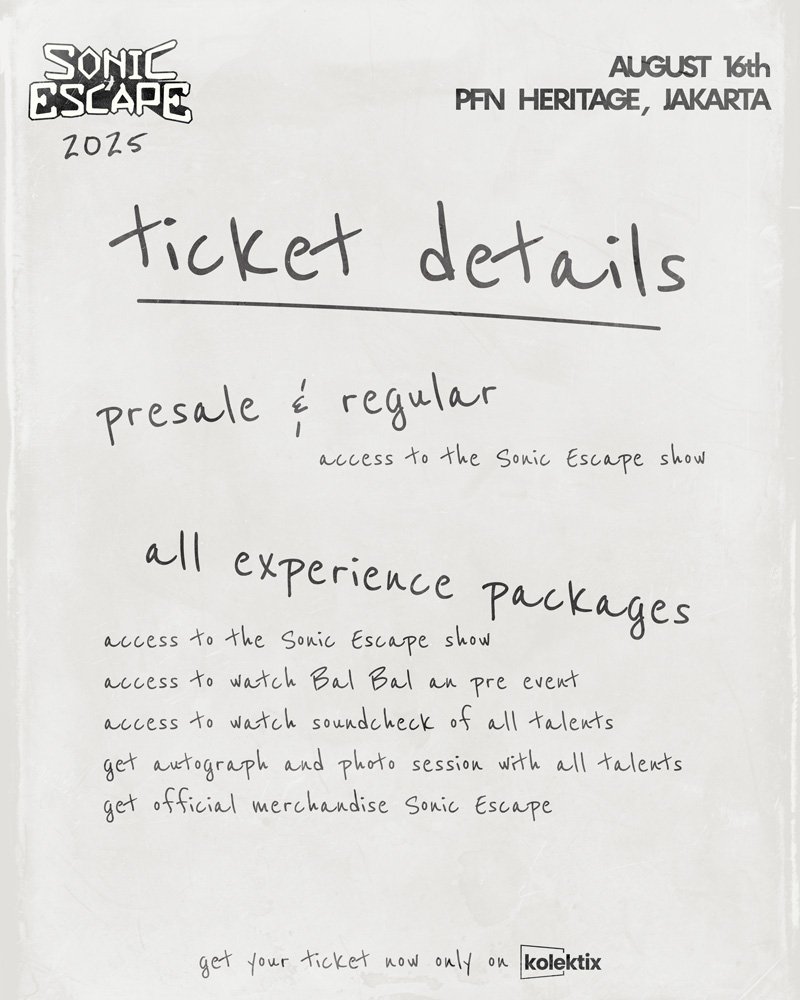 SONIC
ESCAPE
2025
AUGUST 16th
PFN HERITAGE, JAKARTA
ticket details
presale & regular
access to the Sonic Escape show
all experience packages
access to the Sonic Escape show
access to watch Bal Bal an pre event
access to watch soundcheck of all talents
get autograph and photo session with all talents
get official merchandise Sonic Escape
get your ticket now only on kolektix